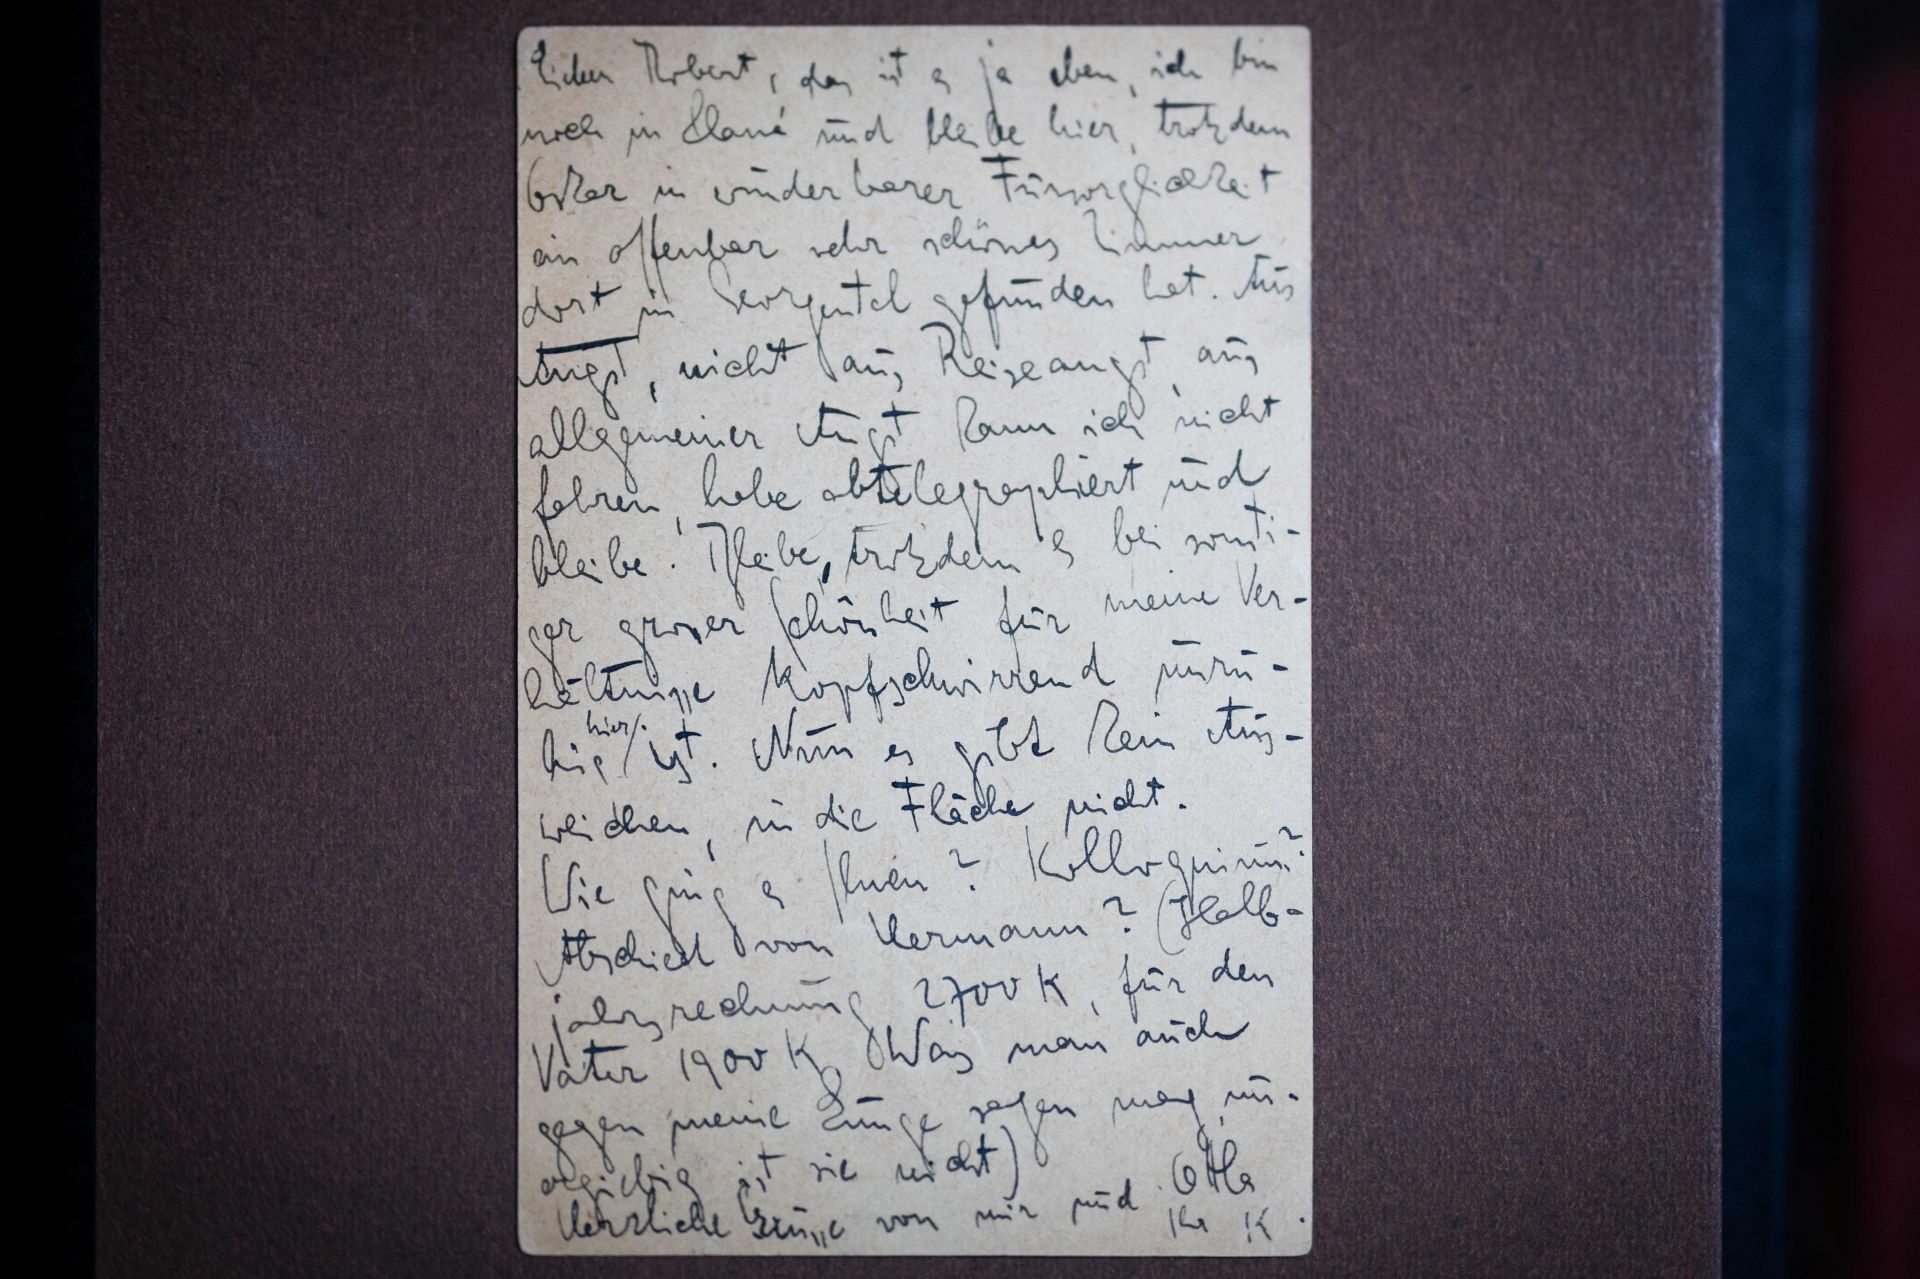 Lieber Robert, das ist es ja eben, ich bin
noch in Planá und bleibe hier, trotzdem
Oskar in wunderbarer Fürsorglichkeit
ein offenbar sehr schönes Zimmer
dort in Georgental gefunden hat. Aus
Angst, nicht aus Reiseangst, aus
allgemeiner Angst kann ich nicht
fahren, habe abtelegraphiert und
bleibe. Bleibe, trotzdem es bei sonsti-
ger grosser Schönheit für meine Ver-
hältnisse kopfschwirrend unru-
hig hier ist. Nun es gibt kein Aus-
weichen, in die Fläche nicht.
Wie ging es Ihnen? Kolloquium?
Abschied von Hermann? (Halb-
jahrsrechnung 2700 K, für den
Vater 1900 K. Was man auch
gegen meine Lunge sagen mag, un-
ergiebig ist sie nicht)
Herzliche Grüsse von mir und Ottla
Ihr K.